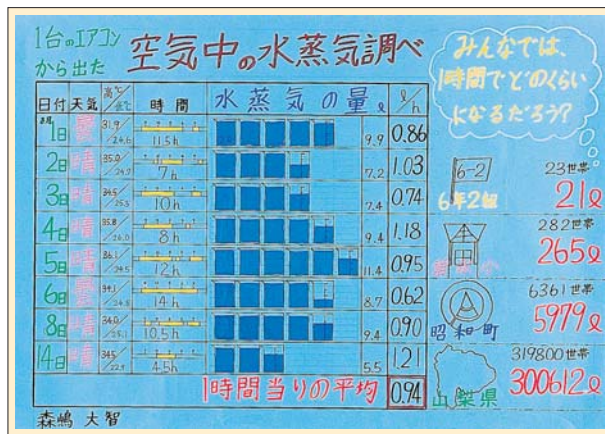 1台のエアコンから出た
空気中の水蒸気調べ
みんなでは、
1時間でどのくらい
になるだろう?
日付 天気 高℃/低℃ 時間 水蒸気の量 ℓ ℓ/h
1日 曇 31.9/24.6 11.5h 9.9 0.86
2日 晴 35.0/24.7 7h 7.2 1.03
3日 晴 34.5/25.5 10h 7.4 0.74
4日 晴 35.8/26.0 8h 9.4 1.18
5日 晴 36.1/24.5 12h 11.4 0.95
6日 曇 34.1/24.8 14h 8.7 0.62
8日 晴 34.0/25.1 10.5h 9.4 0.90
14日 晴 34.5 4.5h 5.5 1.21
1時間当りの平均 0.94
6-2
6年2組
23世帯
21ℓ
小
282世帯
265ℓ
昭和町
6361世帯
5979ℓ
山梨県
319800世帯
300612ℓ
森嶋 大智